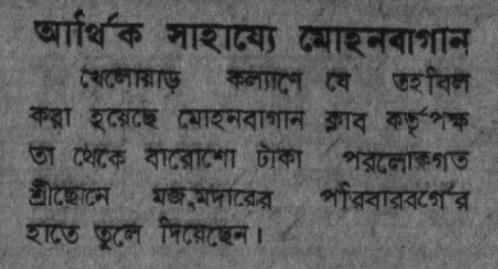 আর্থিক সাহায্যে মোহনবাগান
খেলোয়াড় কল্যাণে যে তহবিল
করা হয়েছে মোহনবাগান ক্লাব কর্তৃপক্ষ
তা থেকে বারোশো টাকা পরলোকগত
শ্রীহোসেন মজুমদারের পরিবারবর্গের
হাতে তুলে দিয়েছেন।